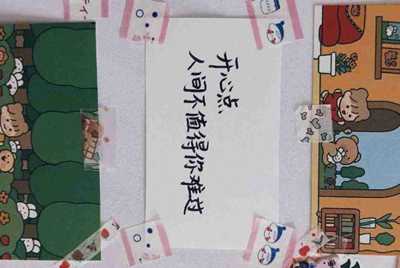 开心点
人间不值得你难过